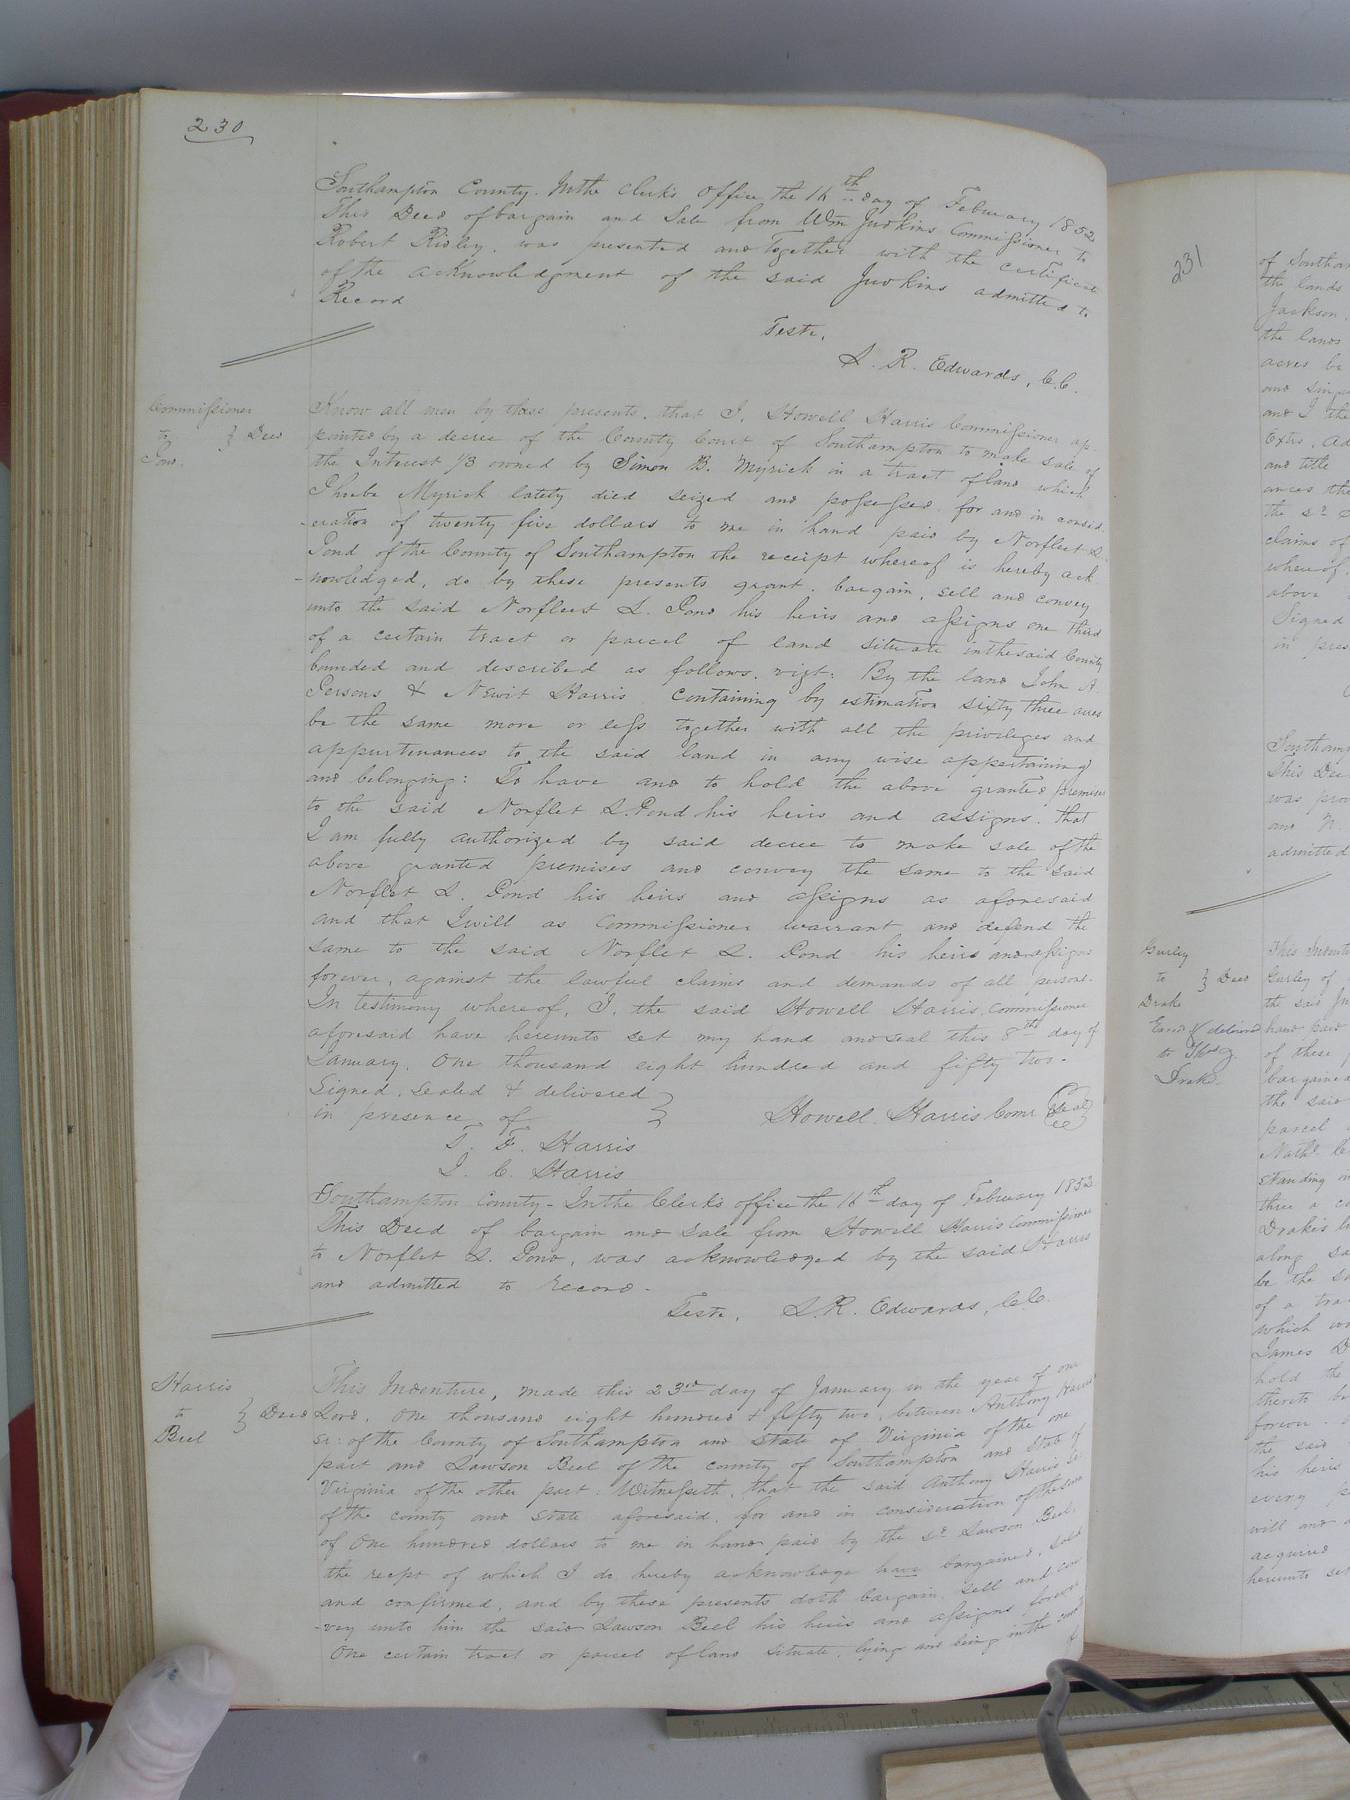 230
Southampton County. In the Clerk's Office the 16th day of February 1852
This Deed of bargain and Sale from Wm Judkins Commissioner to
Robert Ridley, was presented and together with the certificate
of the acknowledgment of the said Judkins admitted to
Record
Teste,
L. R. Edwards, C.C.
Commissioner
to } Deed
Pond.
Know all men by these presents, that I, Howell Harris Commissioner ap-
pointed by a decree of the County Court of Southampton to make sale of
the Interest 1/3 owned by Simon B. Myrick in a tract of land which
Phoebe Myrick lately died seized and possessed. for and in consid-
-eration of twenty five dollars to me in hand paid by Norfleet L.
Pond of the County of Southampton the receipt whereof is hereby ack
-nowledged, do by these presents grant, bargain, sell and convey
unto the said Norfleet L. Pond his heirs and assigns one third
of a certain tract or parcel of land situate in the said County
bounded and described as follows. vizt: By the land John A.
Persons & Newit Harris containing by estimation sixty three acres
be the same more or less together with all the privileges and
appurtenances to the said land in any wise appertaining
and belonging: To have and to hold the above granted premises
to the said Norflet L. Pond his heirs and assigns. that
I am fully authorized by said decree to make sale of the
above granted premises and convey the same to the said
Norflet L. Pond his heirs and assigns as aforesaid
and that I will as Commissioner warrant and defend the
same to the said Norflet L. Pond his heirs and assigns
forever, against the lawful claims and demands of all persons.
In testimony whereof, I, the said Howell Harris, Commissioner
aforesaid have hereunto set my hand and seal this 8th day of
January, One thousand eight hundred and fifty two.
Signed, sealed & delivered }
in presence of } Howell Harris Comr Seal
T. F. Harris
J. C. Harris
Southampton County - In the Clerk's office the 16th day of February 1852
This Deed of bargain and sale from Howell Harris Commissioner
to Norflet L. Pond, was acknowledged by the said Harris
and admitted to record.
Teste, L. R. Edwards, C.C.
Harris
to } Deed
Beel
This Indenture, made this 23rd day of January in the year of our
Lord, One thousand eight hundred & fifty two, between Anthony Harris
Sr: of the County of Southampton and State of Virginia of the one
part and Lawson Beel of the county of Southampton and State of
Virginia of the other part: Witnesseth, that the said Anthony Harris Sr
of the county and State aforesaid, for and in consideration of the sum
of One hundred dollars to me in hand paid by the sd Lawson Beel.
the recpt of which I do hereby acknowledge have bargained, sold
and confirmed, and by these presents doth bargain, sell and con
-vey unto him the said Lawson Beel his heirs and assigns forever
One certain tract or parcel of land situate, lying and being in the County
of
231
of Southam
the lands
Jackson,
the lands
acres be
and sing
and I the
Extrs, Ad
and title
ances the
the sd
claims of
whereof,
above
Signed
in pres
Southam
This Dee
was prov
and N.
admitted
Gurley
to } Deed
Drake
Exd & delivered
to
Drake.
This Indent
Gurley of
the said
hand paid
of these
bargained
the said
parcel
Nathl
standing
three a
Drake's
along
be the
of a tra
which
James D
hold the
thereto be
forever.
the said
his heirs
every
will and
acquired
hereunto set